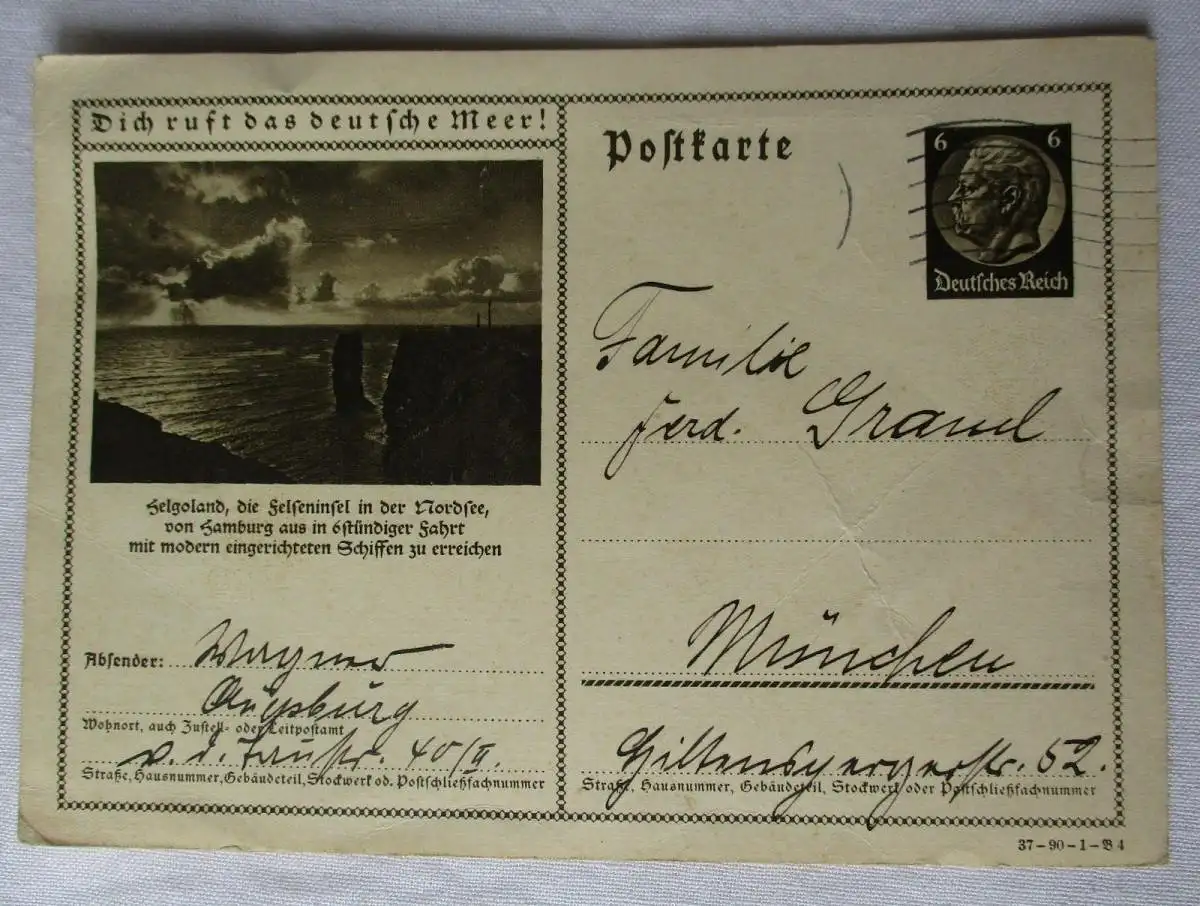 Dich ruft das deutsche Meer!
Helgoland, die Felseninsel in der Nordsee,
von Hamburg aus in 6stündiger Fahrt
mit modern eingerichteten Schiffen zu erreichen
Absender: Wagner
Augsburg
Wohnort, auch Zustell- oder Leitpostamt
v. d. 40/II.
Straße, Hausnummer, Gebäudeteil, Stockwerk od. Postschließfachnummer
Postkarte
6 6
Deutsches Reich
Familie
Ferd. Grandl
München
Hiltenspergerstr. 52.
Straße, Hausnummer, Gebäudeteil, Stockwerk oder Postschließfachnummer
37-90-1-B4